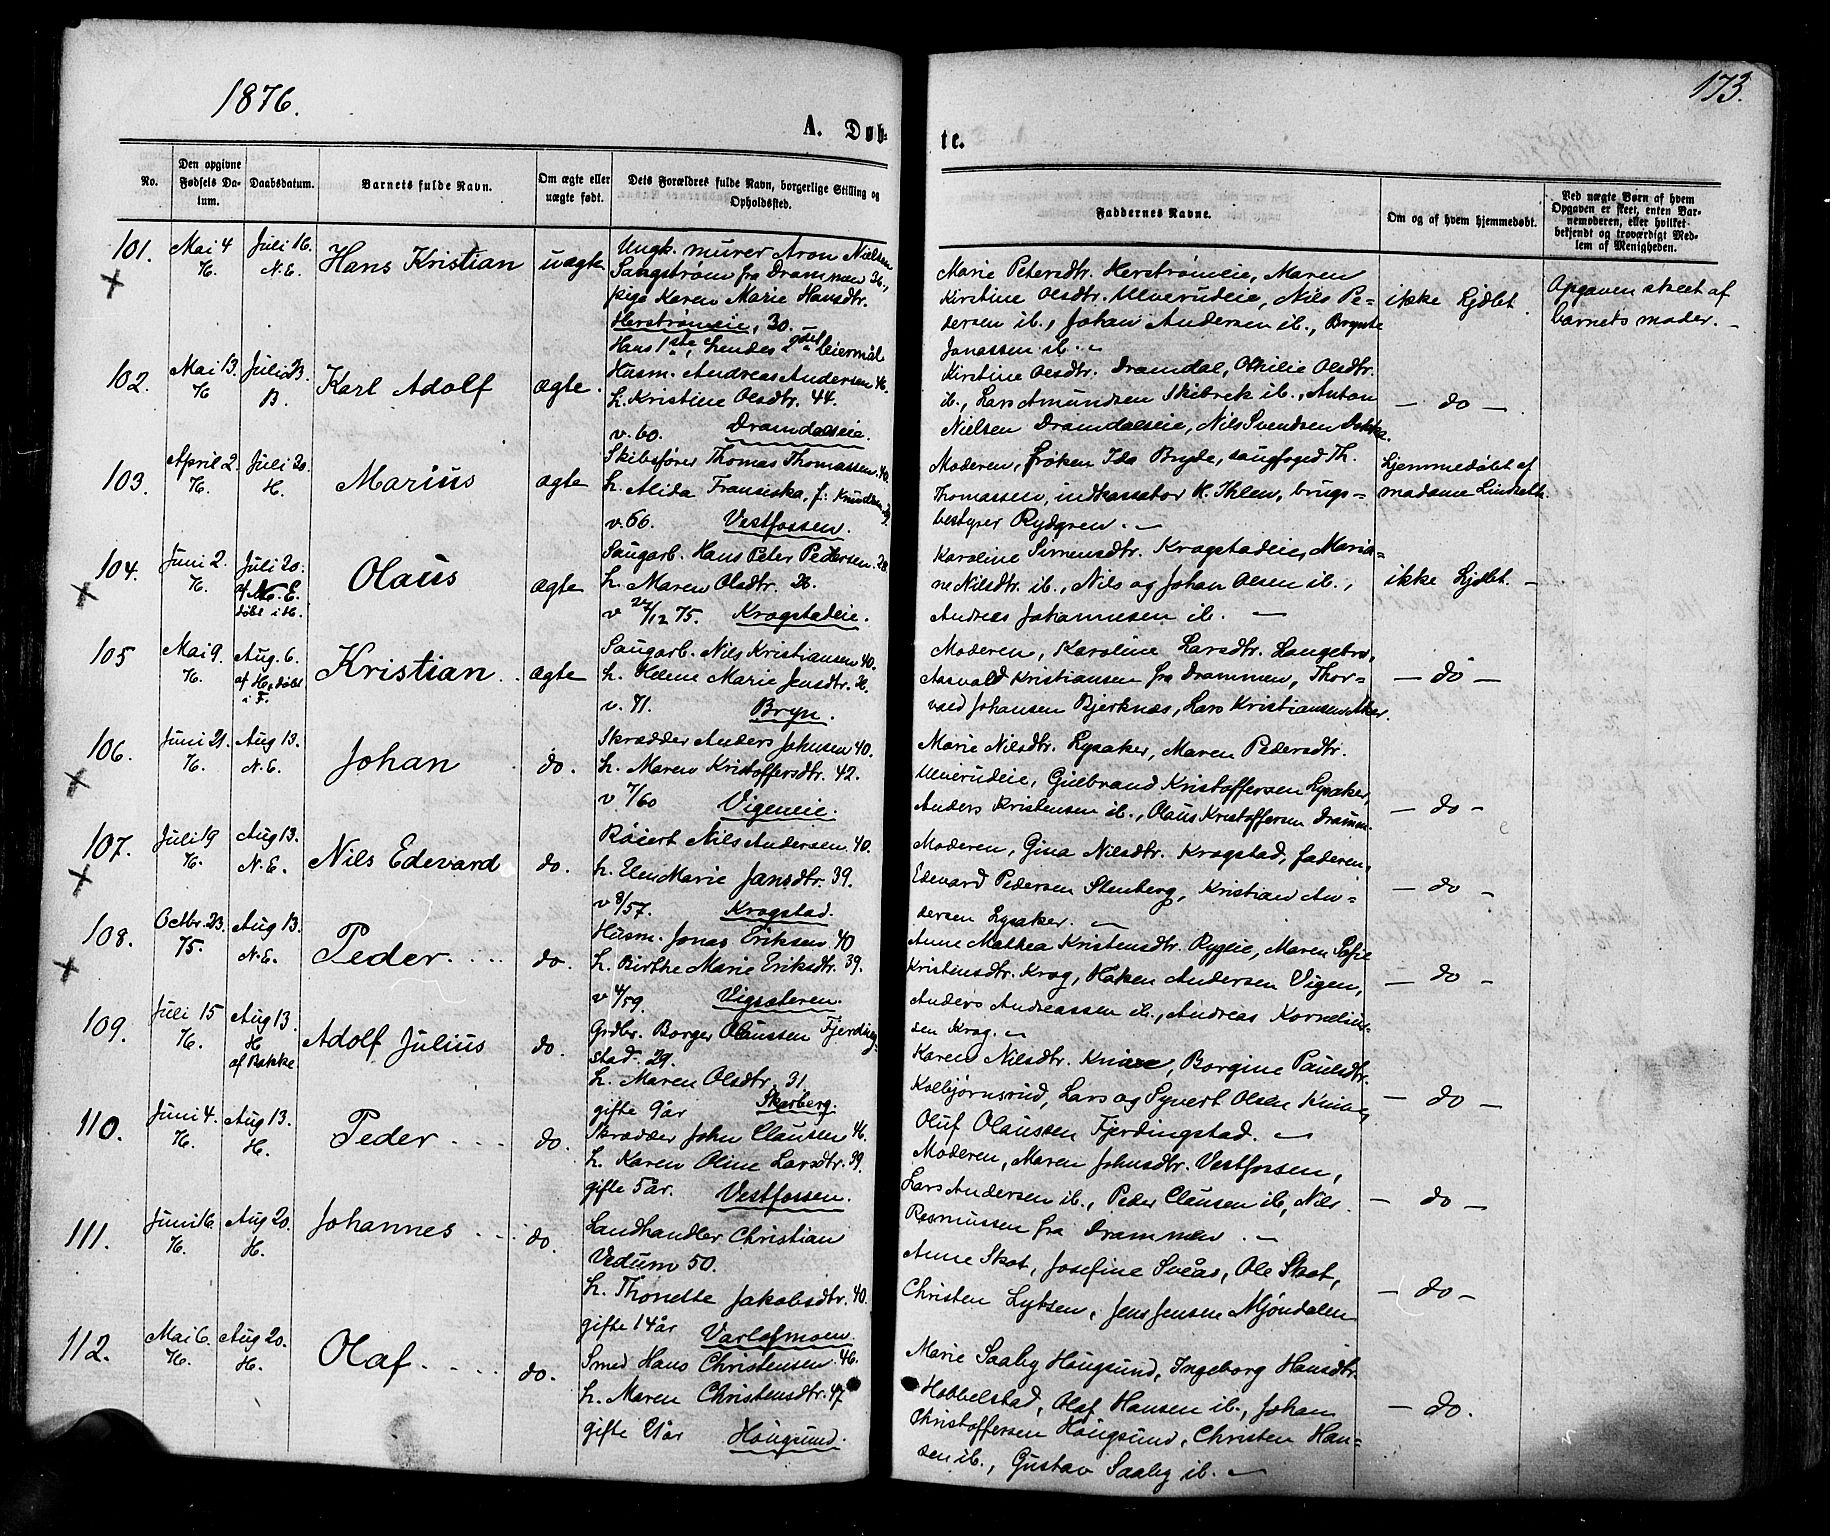 1876.
173.
A. Døb-
te.
No.
Den opgivne Fødsels Da-
tum.
Daabsdatum.
Barnets fulde Navn.
Om ægte eller uægte født.
Dets Forældres fulde Navn, borgerlige Stilling og Opholdssted.
Faddernes Navne.
Om og af hvem hjemmedøbt.
Ved uægte Børn af hvem Opgaven er skeet, enten Bar-
nemoderen, eller hvilket bekjendt og troværdigt Med-
lem af Menigheden.
101. Mai 4 H. Juli 16. N.E. Hans Kristian uægte
Ungk. murer Aron Nielsen
Sangstrøm fra Drammen 36.,
pige Karen Marie Hansdtr.
Herstrømeie, 30.
Hans 1ste, hendes 2det leiermål
Marie Petersdtr. Herstrømeie, Maren
Kirstine Olsdtr. Ulverudeie, Nils Pe-
dersen ib., Johan Andersen ib., Brynte
Jonassen ib. –
ikke hjdøbt.
Opgaven skeet af
barnets moder. –
102. Mai 13. H Juli 23. B. Karl Adolf ægte.
Husm. Andreas Andersen 46.
h. Kristine Olsdtr. 44.
v. 60. Dramdalseie.
Kirstine Olsdtr. Dramdal, Othilie Olsdtr.
ib., Lars Amundsen Skibrek ib., Anton
Nielsen Dramdalseie, Nils Svendsen Dokka.
– do –
103. April 2. H. Juli 20. H. Marius ægte
Skibsfører Thomas Thomassen 40.
h. Alida Fransiska, f. Knudsen 29.
v. 66. Vestfossen.
Moderen, frøken Ida Bryde, saugfoged Th.
Thomassen, indkassator K. Ihlen, brugs-
bestyrer Rydgren. –
hjemmedøbt af
madame Lindseth.
104. Juni 2. H. Juli 20. af N.E. døbt i H. Olaus ægte
Saugarb. Hans Peter Pedersen 28.
h. Maren Olsdtr. 26.
v 26/12 75. Krogstadeie.
Karoline Simensdtr. Krogstadeie, Maria-
ne Nilsdtr. ib., Nils og Johan Olsen ib.,
Andreas Johannesen ib. –
ikke hjdøbt. –
105 Mai 9. H. Aug. 6. af H. døbt i F. Kristian. ægte
Saugarb. Nils Kristiansen 40.
h. Helene Marie Jensdtr. 36.
v. 71. Bryn.
Moderen, Karoline Larsdtr. Langebro,
Aasvald Kristiansen fra Drammen, Thor-
vald Johansen Bjerknæs, Lars Kristiansen Aker.
– do –
106. Juni 21. H. Aug 13. N.E. Johan do.
Skrædder Anders Johnsen 40.
h. Maren Kristoffersdtr. 42.
v 7/60 Vigeneie.
Marie Nilsdtr. Lysaker, Maren Pedersdtr.
Ulverudeie, Gulbrand Kristoffersen Lysaker,
Anders Kristensen ib., Olaus Kristoffersen Dramm.
– do –
107. Juli 19 H. Aug 13. N.E. Nils Edevard do.
Røiert Nils Andersen 40.
h. Elen Marie Jansdtr. 39.
v 8/57. Krogstad.
Moderen, Gina Nilsdtr. Krogstad, faderen,
Edevard Pedersen Stenberg, Kristian An-
dersen Lysaker. –
– do –
108. Octbr. 23. 75. Aug 13. N.E. Peder. do.
Husm. Jonas Eriksen 40
h. Birthe Marie Eriksdtr. 39.
v 4/59. Vigsæteren.
Anne Mathea Kristensdtr. Rygeie, Maren Sofie
Kristinsdtr. Krog, Haken Andersen Vigen,
Anders Andreassen ib., Andreas Kornelius-
sen Krog. –
– do –
109. Juli 15 H. Aug 13. H af Bakke Adolf Julius do.
Grdbr. Borger Olaussen Fjerding-
stad. 29.
h. Maren Olsdtr. 31
gifte 9 år Skarberg.
Karen Nilsdtr. Knive, Borgine Paulsdtr.
Kolbjørnsrud, Lars og Syvert Olsen Knive,
Oluf Olaussen Fjerdingstad. –
– do –
110. Juni 4. H. Aug 13. H. Peder do.
Skrædder John Clausen 46.
h. Karen Oline Larsdtr. 39.
gifte 5 år. Vestfossen.
Moderen, Maren Johnsdtr. Vestfossen,
Lars Andersen ib., Peder Clausen ib., Nils
Rasmussen fra Drammen. –
– do –
111. Juni 16. H. Aug 20. H. Johannes do.
Landhandler Christian
Vedum 50.
h. Thonette Jakobsdtr. 40.
gifte 14 år Varlofmoen.
Anne Skot, Josefine Sveås, Ole Skot,
Christen Lyksen, Jens Jensen Mjøndalen
– do –
112. Mai 6. H. Aug 20. H. Olaf. do.
Smed Hans Christensen 46.
h. Maren Christensdtr. 47
gifte 21 år Hougsund.
Marie Saaby Hougsund, Ingeborg Hansdtr.
Hobbelstad, Olaf Hansen ib., Johan
Christoffersen Hougsund, Christen Han-
sen ib., Gustav Saaby ib. –
– do.